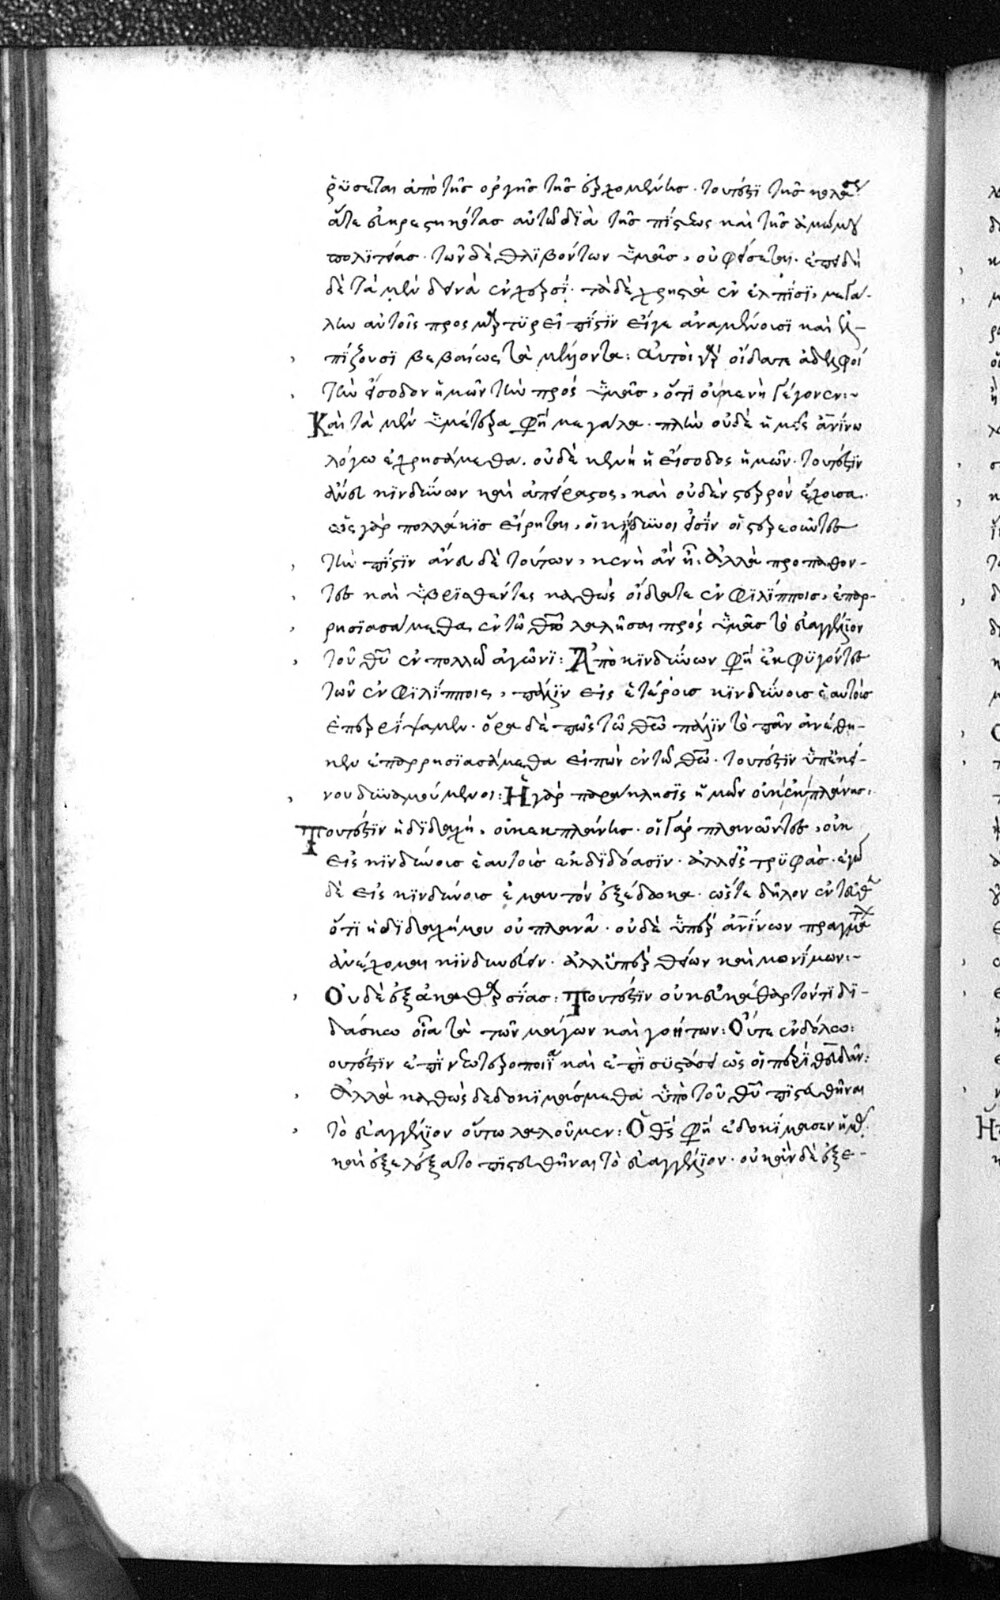 ῥύσεται ἀπὸ τῆς ὀργῆς τῆς ἐρχομένης· τουτέστι τῆς κολάσεως
ἅτε εὐηρεστηκότας αὐτῶ διὰ τῆς πίστεως καὶ τῆς ἀμώμου
πολιτείας· τῶν δὲ θλιβόντων ὑμᾶς, οὐ φείσεται· ἐπειδὴ
δὲ τὰ μὲν δεινὰ ἐν χερσί· τὰ δὲ χρηστὰ ἐν ἐλπίσι, μεγά-
λην αὐτοῖς προσμαρτυρεῖ πίστιν εἴγε ἀναμένουσι καὶ ἐλ-
πίζουσι βεβαίως τὰ μέλλοντα: Αὐτοὶ γὰρ οἴδατε ἀδελφοί
τὴν εἴσοδον ἡμῶν τὴν πρὸς ὑμᾶς, ὅτι οὐ κενὴ γέγονεν:-
Καὶ τὰ μὲν ὑμέτερα φησὶ μεγάλα· πλὴν οὐδὲ ἡμεῖς ἀνθρωπίνω
λόγω ἐχρησάμεθα· οὐδὲ κενὴ ἡ εἴσοδος ἡμῶν· τουτέστιν
ἄνευ κινδύνων καὶ ἀπέραστος, καὶ οὐδὲν στερρὸν ἔχουσα·
ὡς γὰρ πολλάκις εἴρηται, οἱ κίνδυνοι εἰσὶν οἱ στερεοῦντες
τὴν πίστιν ἄνευ δὲ τούτων, κενὴ ἂν ἦ: Ἀλλὰ προπαθόν-
τες καὶ ὑβρισθέντες καθὼς οἴδατε ἐν Φιλίπποις, ἐπαρ-
ρησιασάμεθα ἐν τῶ θεῶ λαλῆσαι πρὸς ὑμᾶς τὸ εὐαγγέλιον
τοῦ θυ ἐν πολλῶ ἀγῶνι: Ἀπὸ κινδύνων φησὶ ἐκφυγόντες
τῶν ἐν Φιλίπποις, πάλιν εἰς ἑτέρους κινδύνους ἑαυτοὺς
ἐπερρίψαμεν· ὅρα δὲ πῶς τῶ θεῶ πάλιν τὸ πᾶν ἀνέθη-
κεν ἐπαρρησιασάμεθα εἰπὼν ἐν τῶ θεῶ· τουτέστιν ὑπ' ἐκεί-
νου δυναμούμενοι: Ἡ γὰρ παράκλησις ἡμῶν οὐκ ἐκ πλάνης:
Τουτέστιν ἡ διδαχή, οὐκ ἐκ πλάνης· οἱ γὰρ πλανῶντες, οὐκ
εἰς κινδύνους ἑαυτοὺς ἐκδιδόασιν· ἀλλ' εἰς τρυφάς· ἐγὼ
δὲ εἰς κινδύνους ἐμαυτὸν ἐξέδωκα· ὥστε δῆλον ἐντεῦθεν
ὅτι ἡ διδαχή μου οὐ πλανᾶ· οὐδὲ ὑπὲρ ἀνθρωπίνων πραγμάτων
ἀνέχομαι κινδυνεύειν· ἀλλ' ὑπὲρ θείων καὶ μονίμων:-
Οὐδὲ ἐξ ἀκαθαρσίας: Τουτέστιν οὐκ ἀκάθαρτόν τι δι-
δάσκω οἷα τὰ τῶν μάγων καὶ γοήτων: Οὔτε ἐν δόλω:
ουτέστιν ἐπὶ νεωτεροποιία καὶ ἐπὶ συστάσει ὡς οἱ περὶ Θευδᾶν:
Ἀλλὰ καθὼς δεδοκιμάσμεθα ὑπὸ τοῦ θυ πιστευθῆναι
τὸ εὐαγγέλιον οὕτω λαλοῦμεν: Ὁ θς φησὶ ἐδοκίμασεν ἡμᾶς
καὶ ἐξελέξατο πιστευθῆναι τὸ εὐαγγέλιον· οὐκ ἂν δὲ ἐξε-